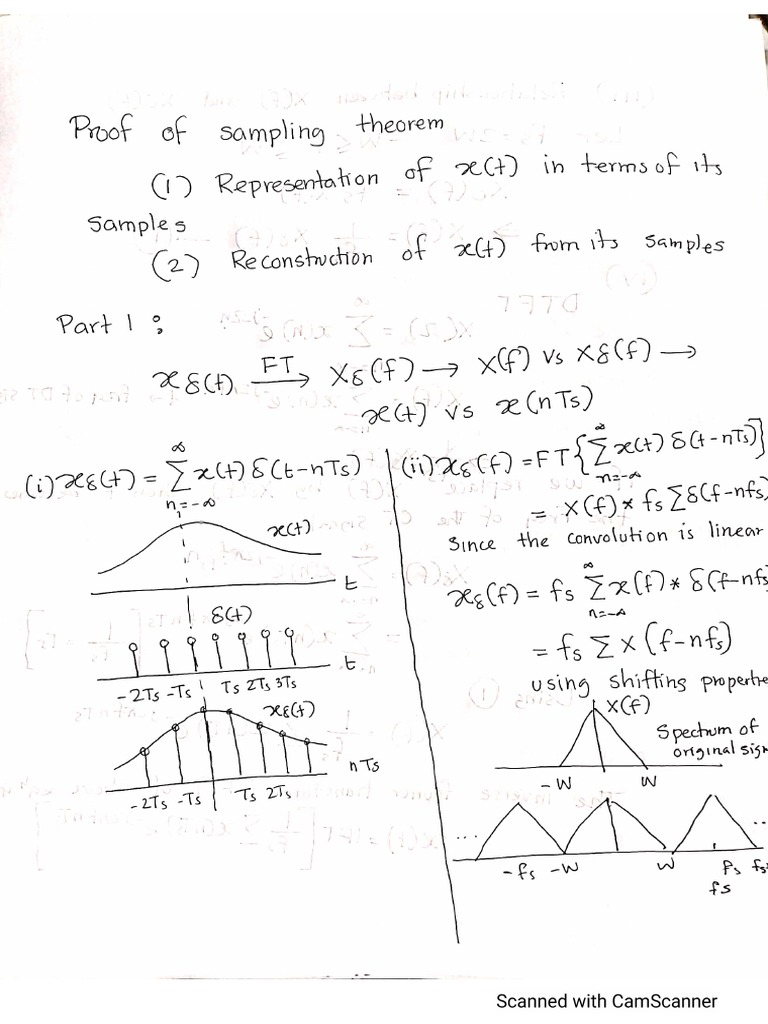 Proof of sampling theorem
(1) Representation of x(t) in terms of its
samples
(2) Reconstruction of x(t) from its samples
Part 1 :
xδ(t) FT→ Xδ(f) → X(f) vs Xδ(f) →
x(t) vs x(nTs)
(i) xδ(t) = ∞ Σ n=-∞ x(t) δ(t-nTs)
x(t)
t
δ(t)
t
-2Ts -Ts Ts 2Ts 3Ts
xδ(t)
nTs
-2Ts -Ts Ts 2Ts
(ii) xδ(f) = FT{∞ Σ n=-∞ x(t) δ(t-nTs)}
= X(f) * fs Σδ(f-nfs)
Since the convolution is linear
xδ(f) = fs ∞ Σ n=-∞ x(f) * δ(f-nfs
= fs Σ X (f-nfs)
using shifting propertie
X(f)
Spectrum of
original sign
-W W
... ..
-fs -W W fs fs
fs
Scanned with CamScanner